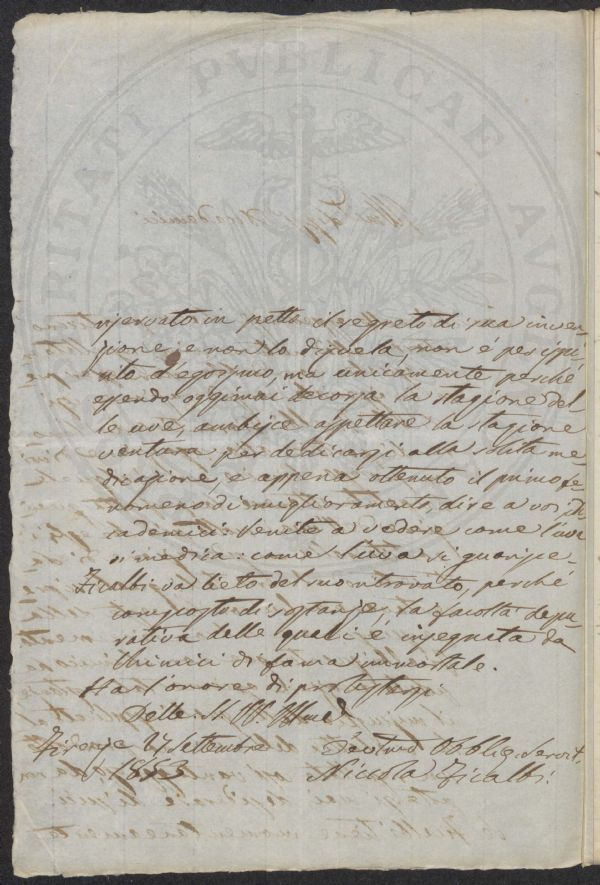 PVBLICAE
riservato in petto il segreto di sua inven
zione, e non lo disvela, non è per ispi
rito d'egoismo, ma unicamente perché
essendo oggimai decorsa la stagione del
le uve, ambisce aspettare la stagione
ventura per dedicarsi alla solita me
dicazione, e appena ottenuto il primo fe
nomeno di miglioramento, dire a voi, Ac
cademici venite a vedere come l'uva
si medica: come l'uva si guarisce.
Ficalbi va lieto del suo ritrovato, perché
composto di sostanze, la facoltà depu
rativa delle quali è insegnata da
Chimici di fama immortale.
Ha l'onore di protestarsi
Delle SS. VV. Illme
Firenze 27 Settembre
1853
Devotmo Obblig. Servit.
Niccola Ficalbi.